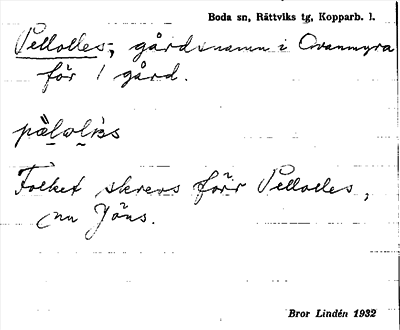 Boda sn, Rättviks tg, Kopparb. l.
Pellolles-, gårdsnamn i Ovanmyra
för 1 gård.
Folket skrevs förr Pellolles,
nu Jöns.
Bror Lindén 1932